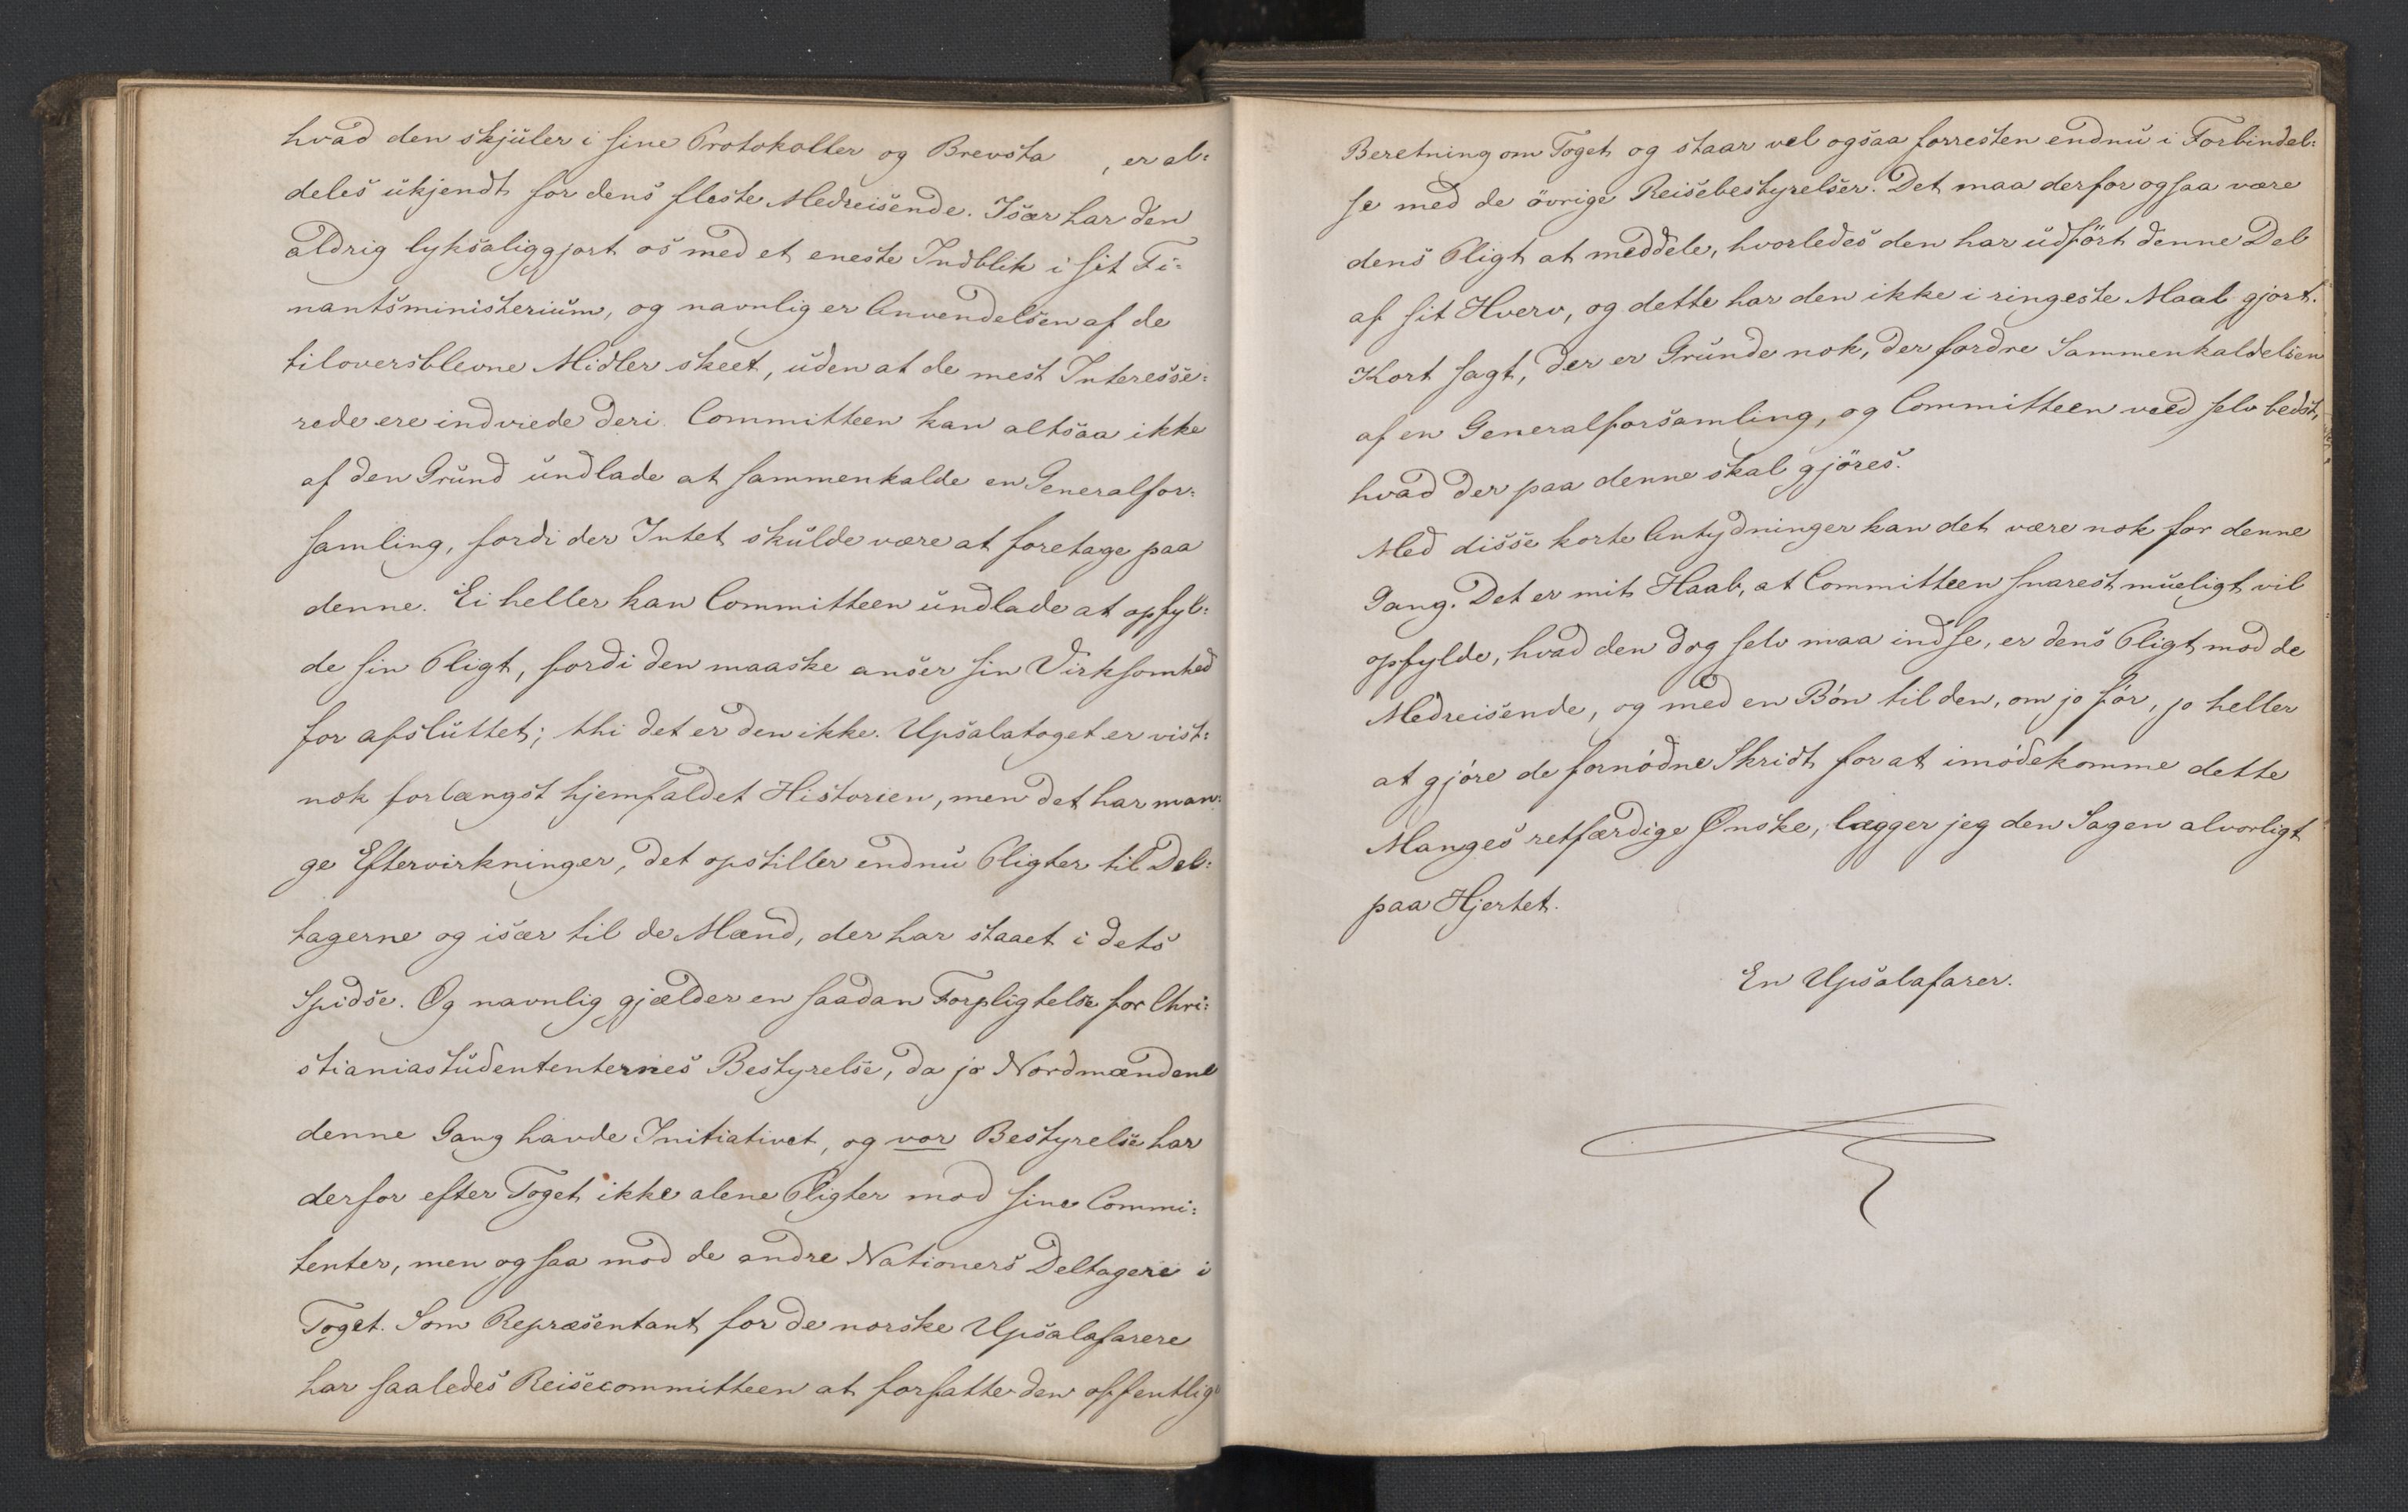 hvad den skjuler i sine Protokoller og Brevsta , er al=
deles ukjendt for dens fleste Medreisende. Især har den
aldrig lyksaliggjort os med et eneste Indblik i sit Fi=
nantsministerium, og navnlig er Anvendelsen af de
tiloversblevne Midler skeet, uden at de mest Interesse=
rede ere indviede deri. Committeen kan altsaa ikke
af den Grund undlade at sammenkalde en Generalfor=
samling, fordi der Intet skulde være at foretage paa
denne. Ei heller kan Committeen undlade at opfyl=
de sin Pligt, fordi den maaske anser sin Virksomhed
for afsluttet; thi det er den ikke. Upsalatoget er vist=
nok forlængst hjemfaldet Historien, men det har man=
ge Eftervirkninger, det opstiller endnu Pligter til Del=
tagerne og især til de Mænd, der har staaet i dets
Spidse. Og navnlig gjælder en saadan Forpligtelse for Chri=
stianiastudententernes Bestyrelse, da jo Nordmændene
denne Gang havde Initiativet, og vor Bestyrelse har
derfor efter Toget ikke alene Pligter mod sine Commi=
tenter, men ogsaa mod de andre Nationers Deltagere i
Toget. Som Repræsentant for de norske Upsalafarere
har saaledes Reisecommitteen at forfatte den offentlige
Beretning om Toget og staar vel ogsaa forresten endnu i Forbindel=
se med de övrige Reisebestyrelser. Det maa derfor ogsaa være
dens Pligt at meddele, hvorledes den har udfört denne Del
af sit Hverv, og dette har den ikke i ringeste Maal gjort.
Kort sagt, der er Grunde nok, der fordre Sammenkaldelsen
af en Generalforsamling, og Committeen veed selv bedst,
hvad der paa denne skal gjöres.
Med disse korte Antydninger kan det være nok for denne
Gang. Det er mit Haab, at Committeen snarest mueligt vil
opfylde, hvad den dog selv maa indse, er dens Pligt mod de
Medreisende, og med en Bón til den, om jo fór, jo heller
at gjóre de fornódne Skridt for at imódekomme dette
Manges retfærdige Ønske, lægger jeg den Sagen alvorligt
paa Hjertet.
En Upsalafarer.